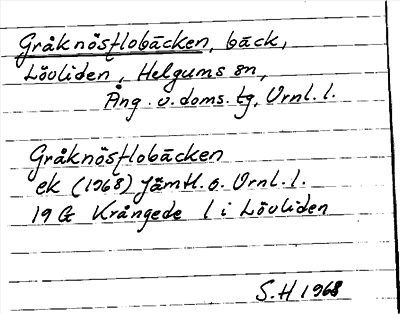 Gråknöstlobäcken, bäck,
Lövliden, Helgums sn,
Ång. v. doms. tg, Vrnl. l.
Gråknöstlobäcken
ek (1968) Jämtl. o. Vrnl. l.
19 G Krångede l i Lövliden
S.H 1968